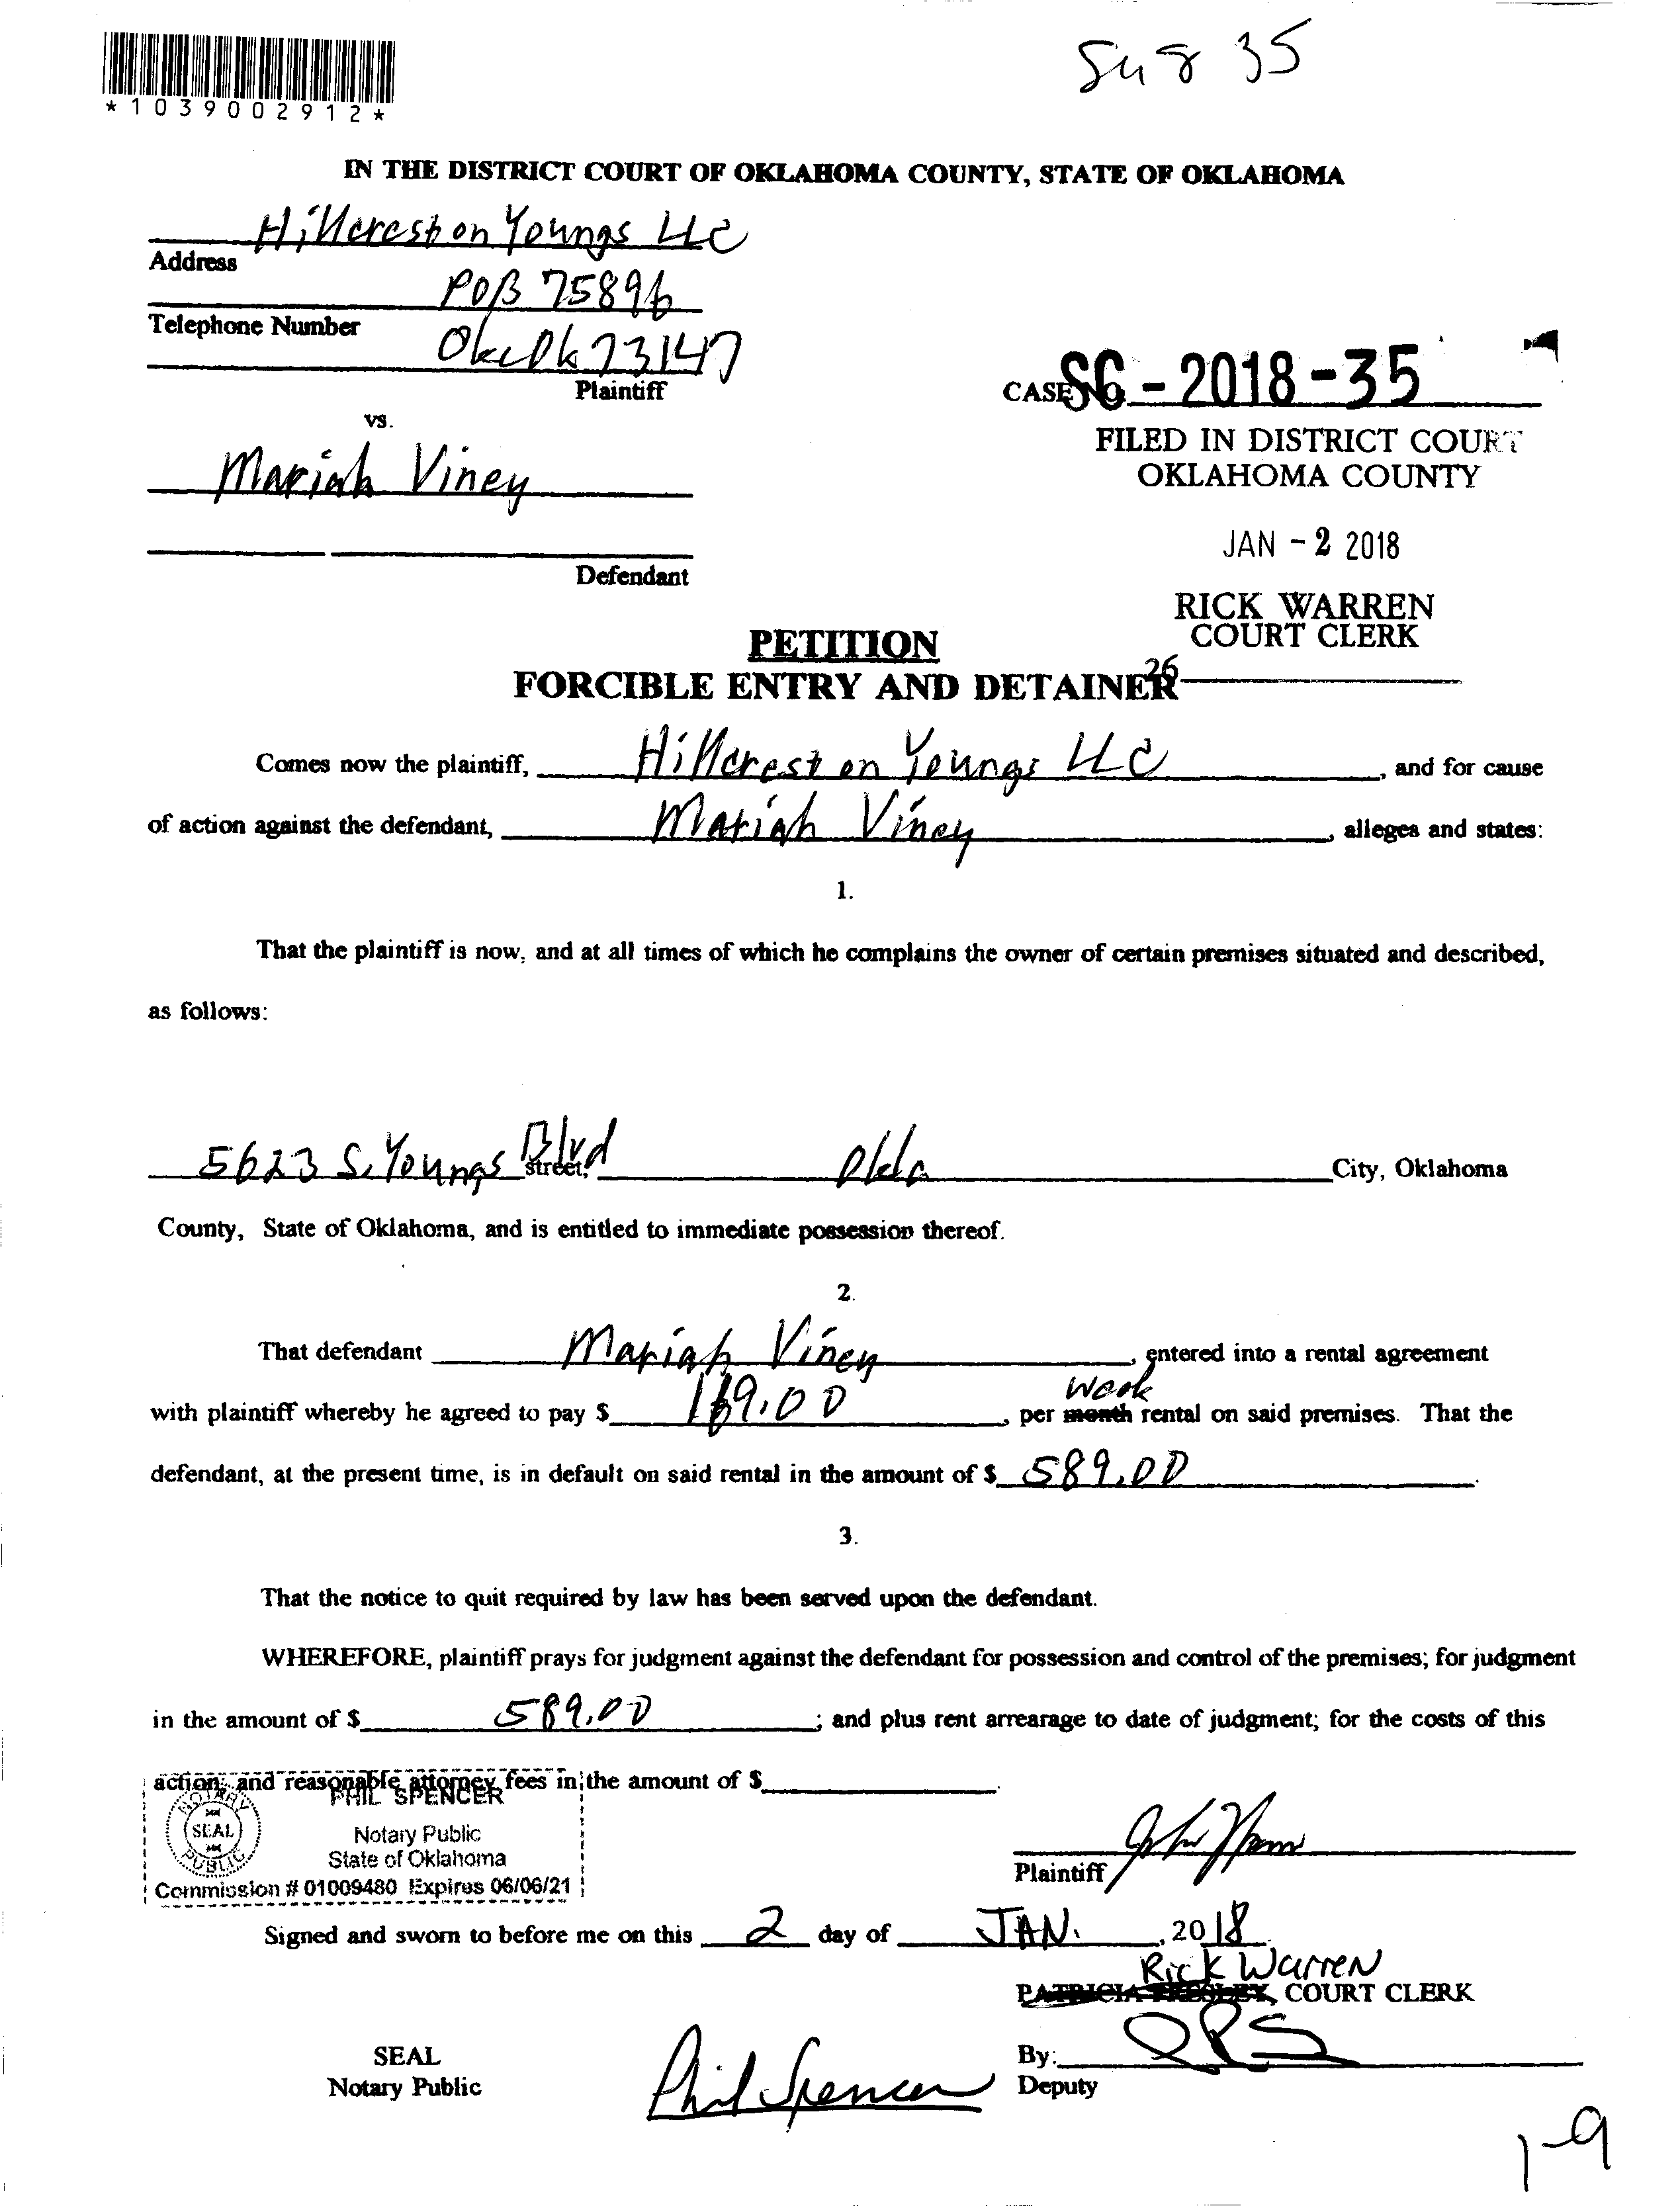 Su 8 35
*1039002912*
IN THE DISTRICT COURT OF OKLAHOMA COUNTY, STATE OF OKLAHOMA
Hillcrest on Youngs LLC
Address
POB 75896
Telephone Number
Okc Ok 73147
Plaintiff
CASE NO. SC-2018-35
vs.
FILED IN DISTRICT COURT
OKLAHOMA COUNTY
Mariah Viney
JAN - 2 2018
Defendant
RICK WARREN
COURT CLERK
PETITION
26
FORCIBLE ENTRY AND DETAINER
Comes now the plaintiff, Hillcrest on Youngs LLC, and for cause
of action against the defendant, Mariah Viney, alleges and states:
1.
That the plaintiff is now, and at all times of which he complains the owner of certain premises situated and described,
as follows:
5623 S. Youngs Blvd street, Okla City, Oklahoma
County, State of Oklahoma, and is entitled to immediate possession thereof.
2.
That defendant Mariah Viney, entered into a rental agreement
week
with plaintiff whereby he agreed to pay $ 169.00, per month rental on said premises. That the
defendant, at the present time, is in default on said rental in the amount of $ 589.00.
3.
That the notice to quit required by law has been served upon the defendant.
WHEREFORE, plaintiff prays for judgment against the defendant for possession and control of the premises; for judgment
in the amount of $ 589.00; and plus rent arrearage to date of judgment; for the costs of this
action; and reasonable attorney fees in the amount of $
PHIL SPENCER
NOTARY
SEAL
PUBLIC
Notary Public
State of Oklahoma
Commission # 01009480 Expires 06/06/21
Plaintiff
Signed and sworn to before me on this 2 day of JAN., 2018.
Rick Warren
PATRICIA PRESLEY, COURT CLERK
SEAL
By:
Notary Public
Phil Spencer
Deputy
1-9